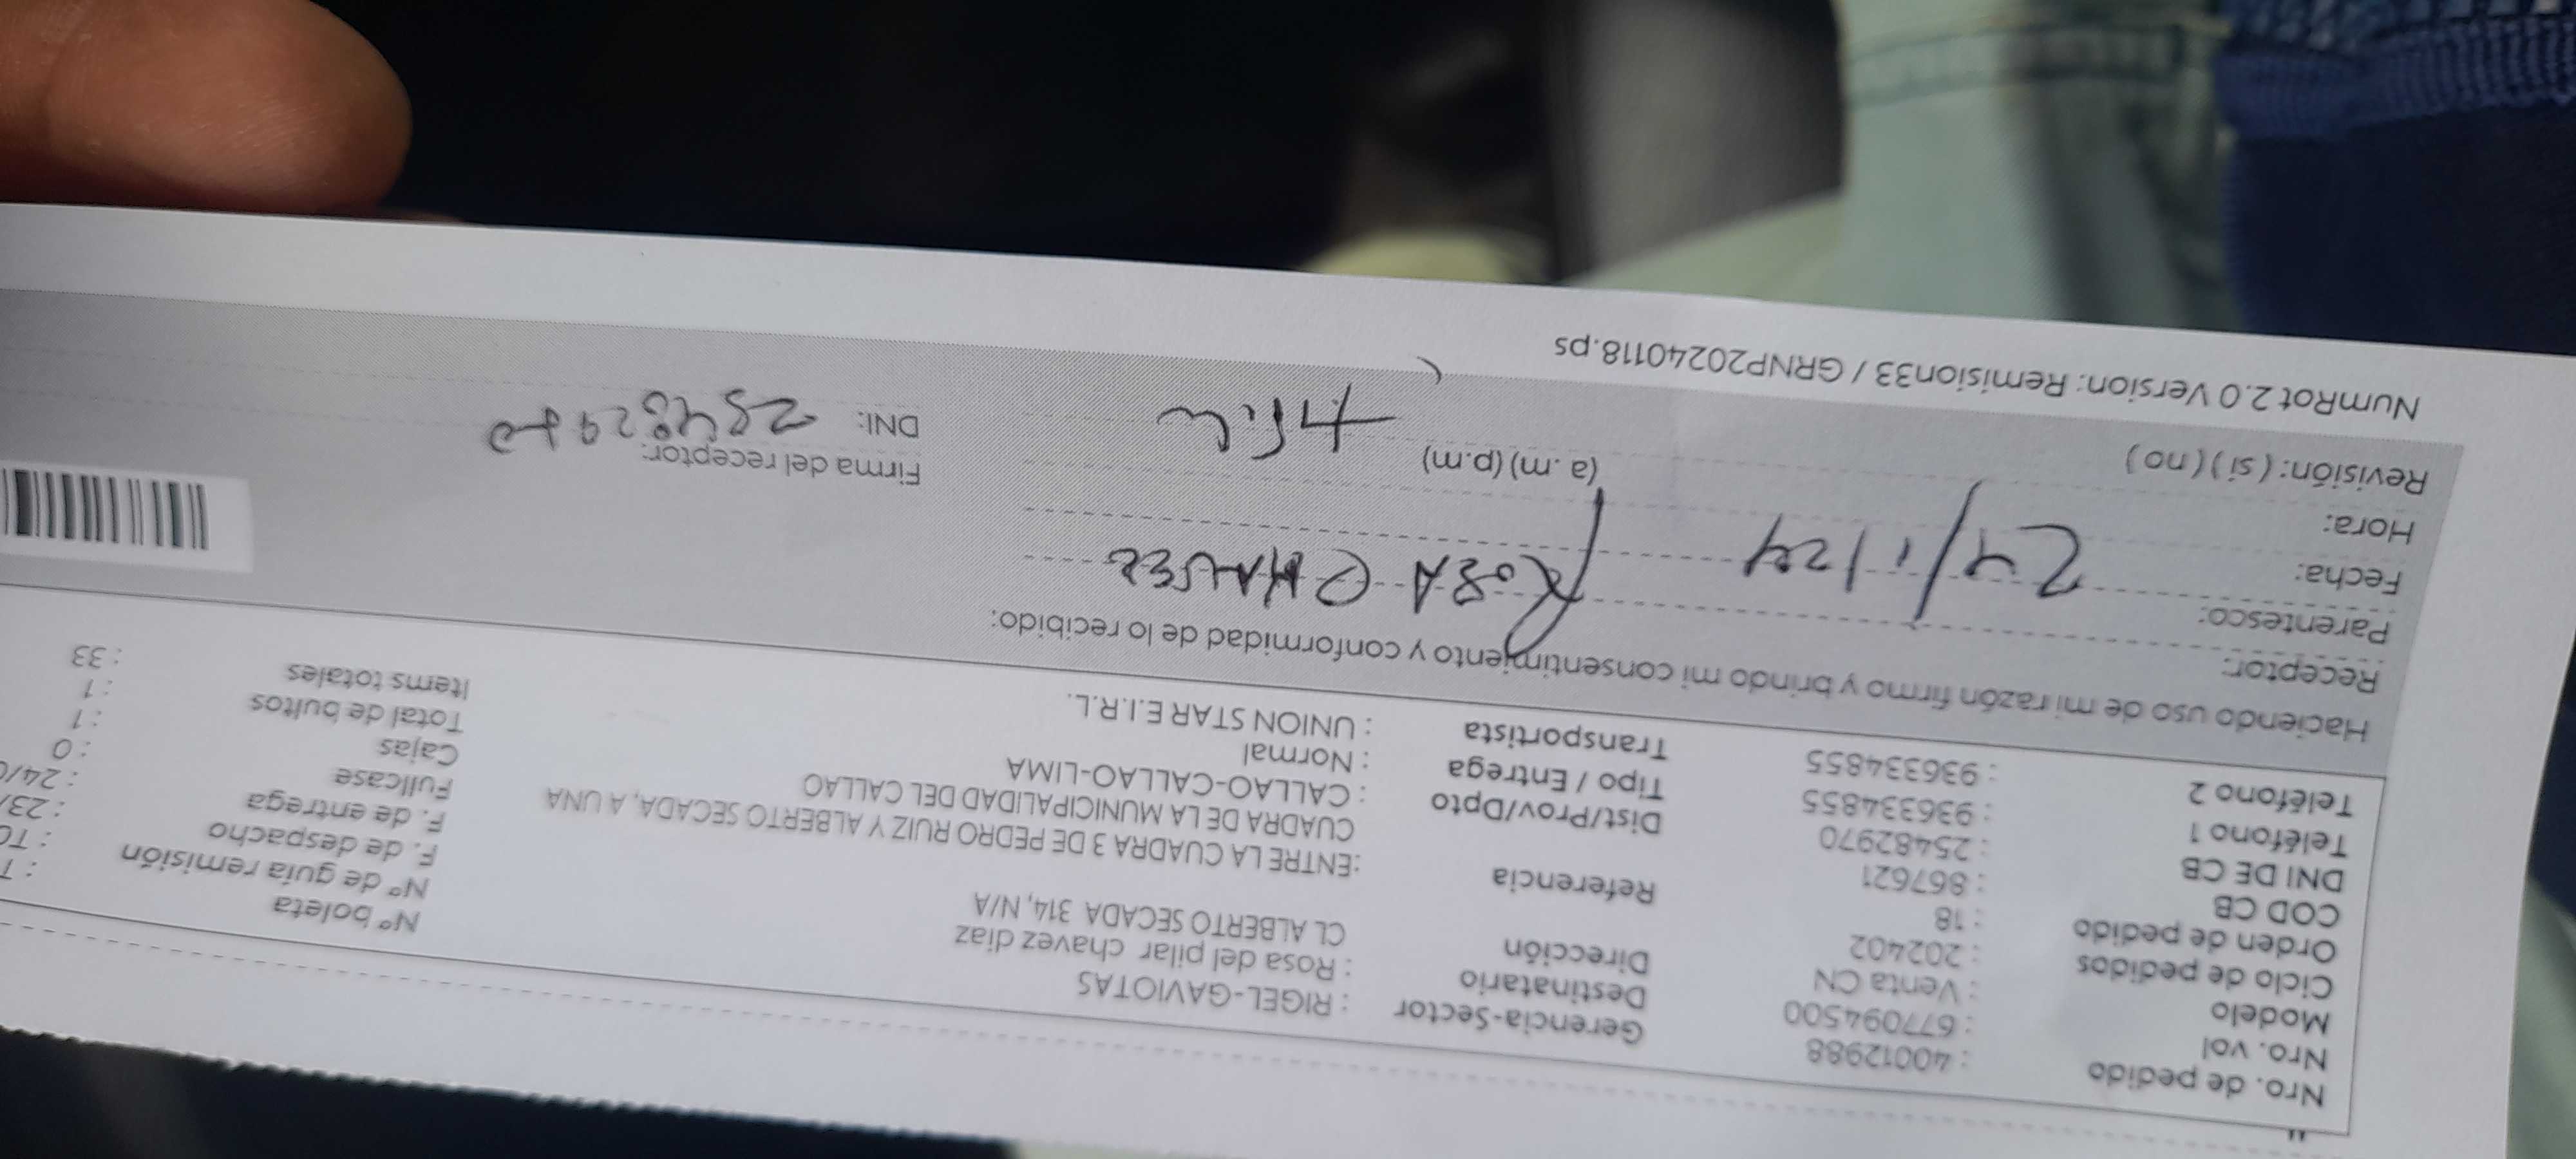 Nro. de pedido : 40012988 Gerencia-Sector : RIGEL-GAVIOTAS Nº boleta
Nro. vol : 677094500 Destinatario : Rosa del pilar chavez diaz Nº de guía remisión
Modelo : Venta CN Dirección CL ALBERTO SECADA 314, N/A F. de despacho : 23/
Ciclo de pedidos : 202402 Referencia :ENTRE LA CUADRA 3 DE PEDRO RUIZ Y ALBERTO SECADA, A UNA F. de entrega : 24/0
Orden de pedido : 18 CUADRA DE LA MUNICIPALIDAD DEL CALLAO Fullcase : 0
COD CB : 867621 Dist/Prov/Dpto : CALLAO-CALLAO-LIMA Cajas : 1
DNI DE CB : 25482970 Tipo / Entrega : Normal Total de bultos : 1
Teléfono 1 : 936334855 Transportista : UNION STAR E.I.R.L. Items totales : 33
Teléfono 2 : 936334855
Haciendo uso de mi razón firmo y brindo mi consentimiento y conformidad de lo recibido:
Receptor: ROSA CHAVEZ
Parentesco:
Fecha: 24/1/24
Hora: (a.m) (p.m) Firma del receptor:
Revisión: (si) (no) DNI: 25482970
NumRot 2.0 Version: Remision33 / GRNP20240118.ps